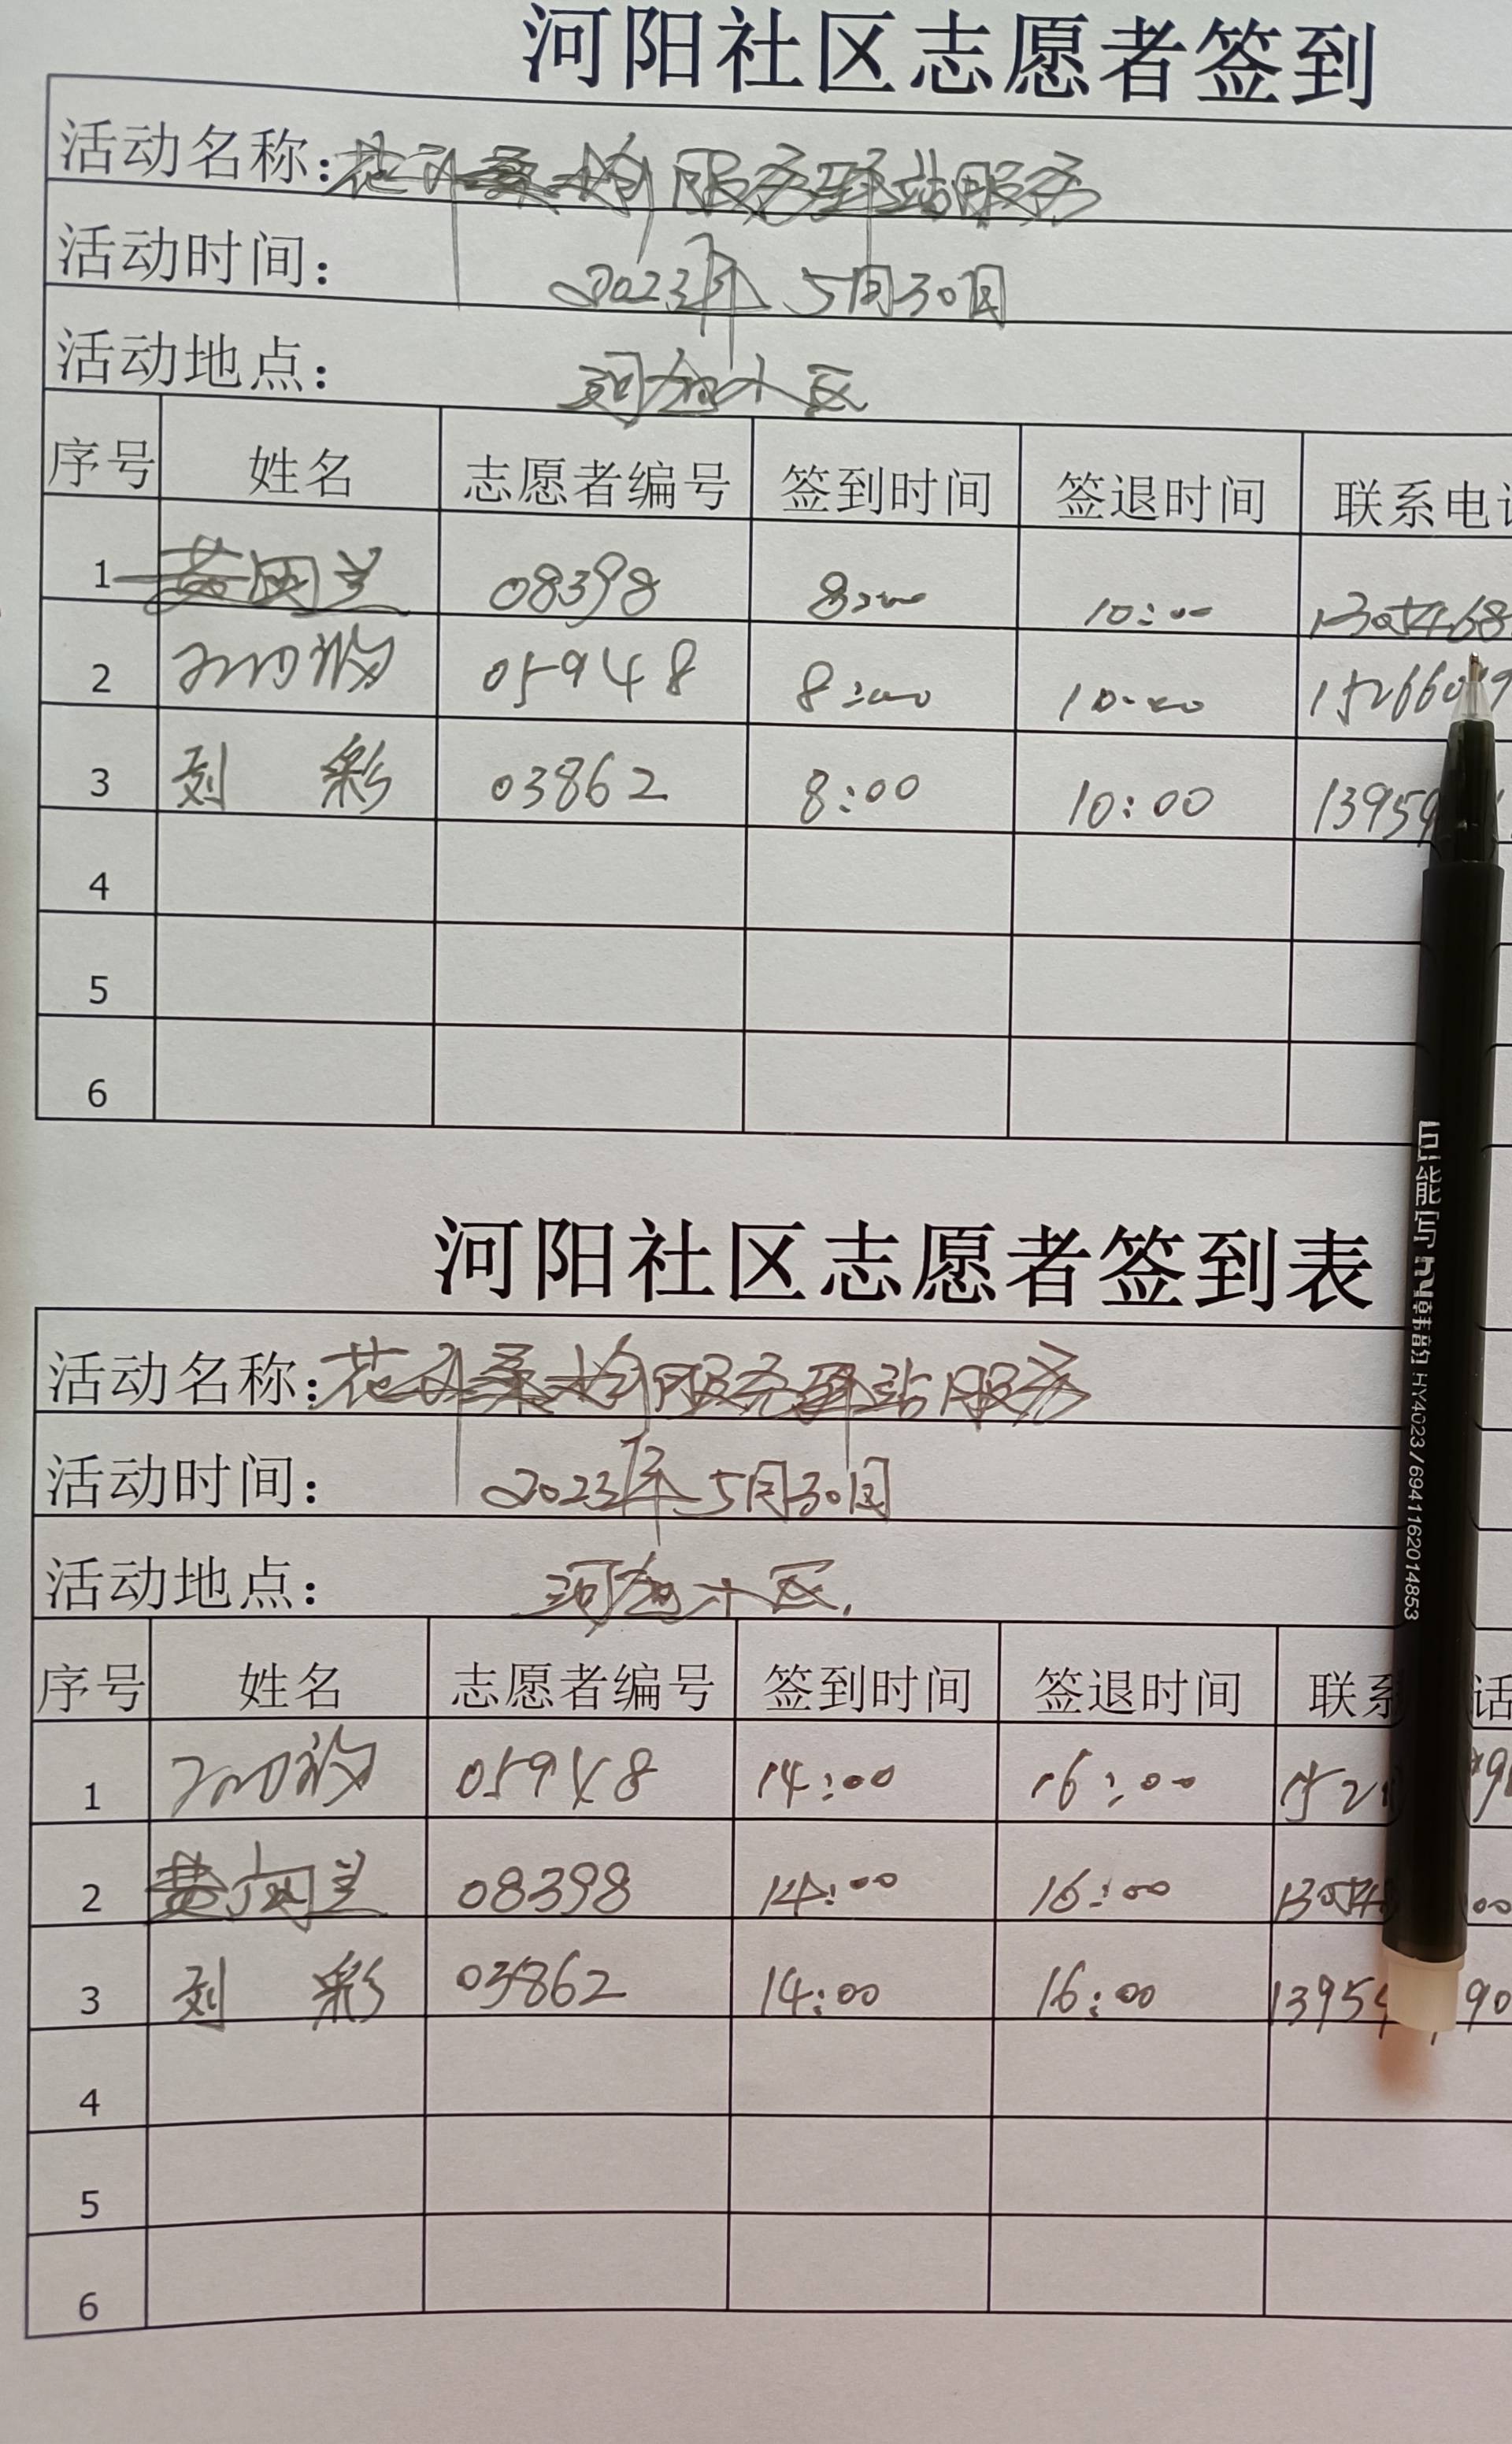 河阳社区志愿者签到
活动名称：花儿柔情服务驿站服务
活动时间： 2023年5月30日
活动地点： 河阳小区
序号 姓名 志愿者编号 签到时间 签退时间 联系电
1 08398 8:00 10:00
2 05948 8:00 10:00
3 刘彩 03862 8:00 10:00
4
5
6
河阳社区志愿者签到表
活动名称：花儿柔情服务驿站服务
活动时间： 2023年5月30日
活动地点： 河阳小区
序号 姓名 志愿者编号 签到时间 签退时间 联系 话
1 05948 14:00 16:00
2 08398 14:00 16:00
3 刘彩 03862 14:00 16:00
4
5
6
能写 韩韵 HY4023/6941162014853